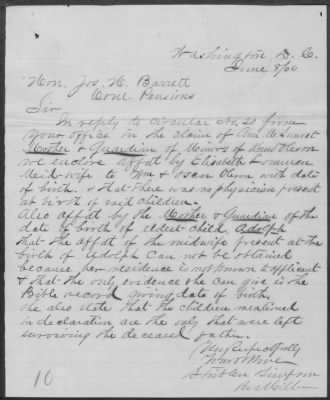 Washington D. C.
June 8/66
Hon. Jos. H. Barrett
Com. Pensions
Sir
In reply to circular No. 20 from
your office in the claim of Ann M.
Mother & Guardian of Minors of Olson
we enclose affdt by Elizabeth
Midwife to Wm & Oscar Olson with date
of birth. & that there was no physician present
at birth of said children.
Also affdt by the Mother & Guardian of the
date of birth of eldest child, Adolph
that the affdt of the midwife present at the
birth of Adolph can not be obtained
because her residence is not known to applicant
& that the only evidence she can give is the
Bible record giving date of birth.
She also state that the children mentioned
in declaration are the only that were left
surviving the deceased father.
Very Respectfully
10